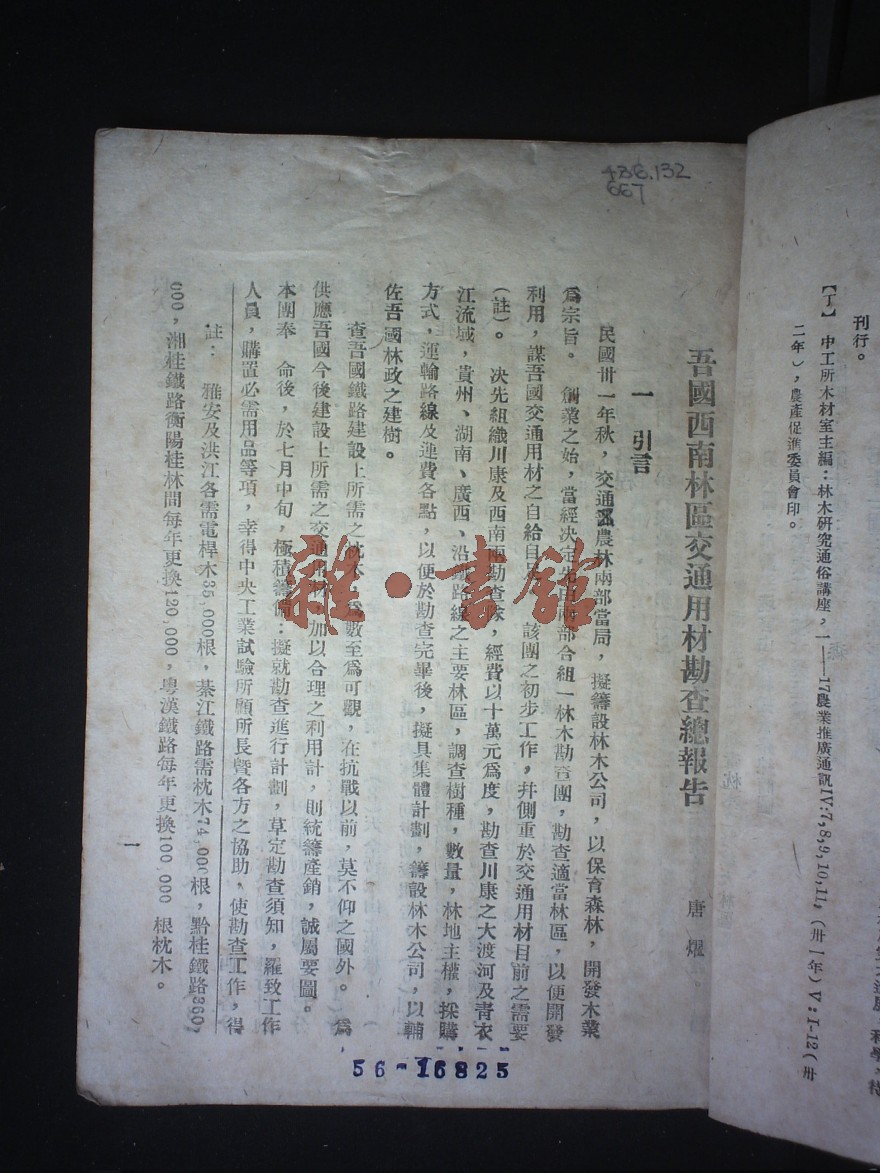 486.132
667
刊行。
【丁】 中工所木材室主編：林木研究通俗講座，一——17農業推廣通訊IV:7,8,9,10,11,（卅一年）V:1-12（卅
二年），農產促進委員會印。
吾國西南林區交通用材勘查總報告
唐燿
一 引言
民國卅一年秋，交通農林兩部當局，擬籌設林木公司，以保育森林，開發木業
爲宗旨。創業之始，當經決定先由兩部合組一林木勘查團，勘查適當林區，以便開發
利用，謀吾國交通用材之自給自足。該團之初步工作，幷側重於交通用材目前之需要
（註）。決先組織川康及西南兩勘查隊，經費以十萬元爲度，勘查川康之大渡河及青衣
江流域，貴州、湖南、廣西、沿鐵路線之主要林區，調查樹種，數量，林地主權，採購
方式，運輸路線及運費各點，以便於勘查完畢後，擬具集體計劃，籌設林木公司，以輔
佐吾國林政之建樹。
查吾國鐵路建設上所需之枕木，爲數至爲可觀，在抗戰以前，莫不仰之國外。爲
供應吾國今後建設上所需之交通用材，加以合理之利用計，則統籌產銷，誠屬要圖。
本團奉 命後，於七月中旬，極積籌備：擬就勘查進行計劃，草定勘查須知，羅致工作
人員，購置必需用品等項，幸得中央工業試驗所顧所長暨各方之協助，使勘查工作，得
註： 雅安及洪江各需電桿木35,000根，綦江鐵路需枕木74,000根，黔桂鐵路360,
000，湘桂鐵路衡陽桂林間每年更換120,000，粵漢鐵路每年更換100,000 根枕木。
一
56-16825
雜·書館